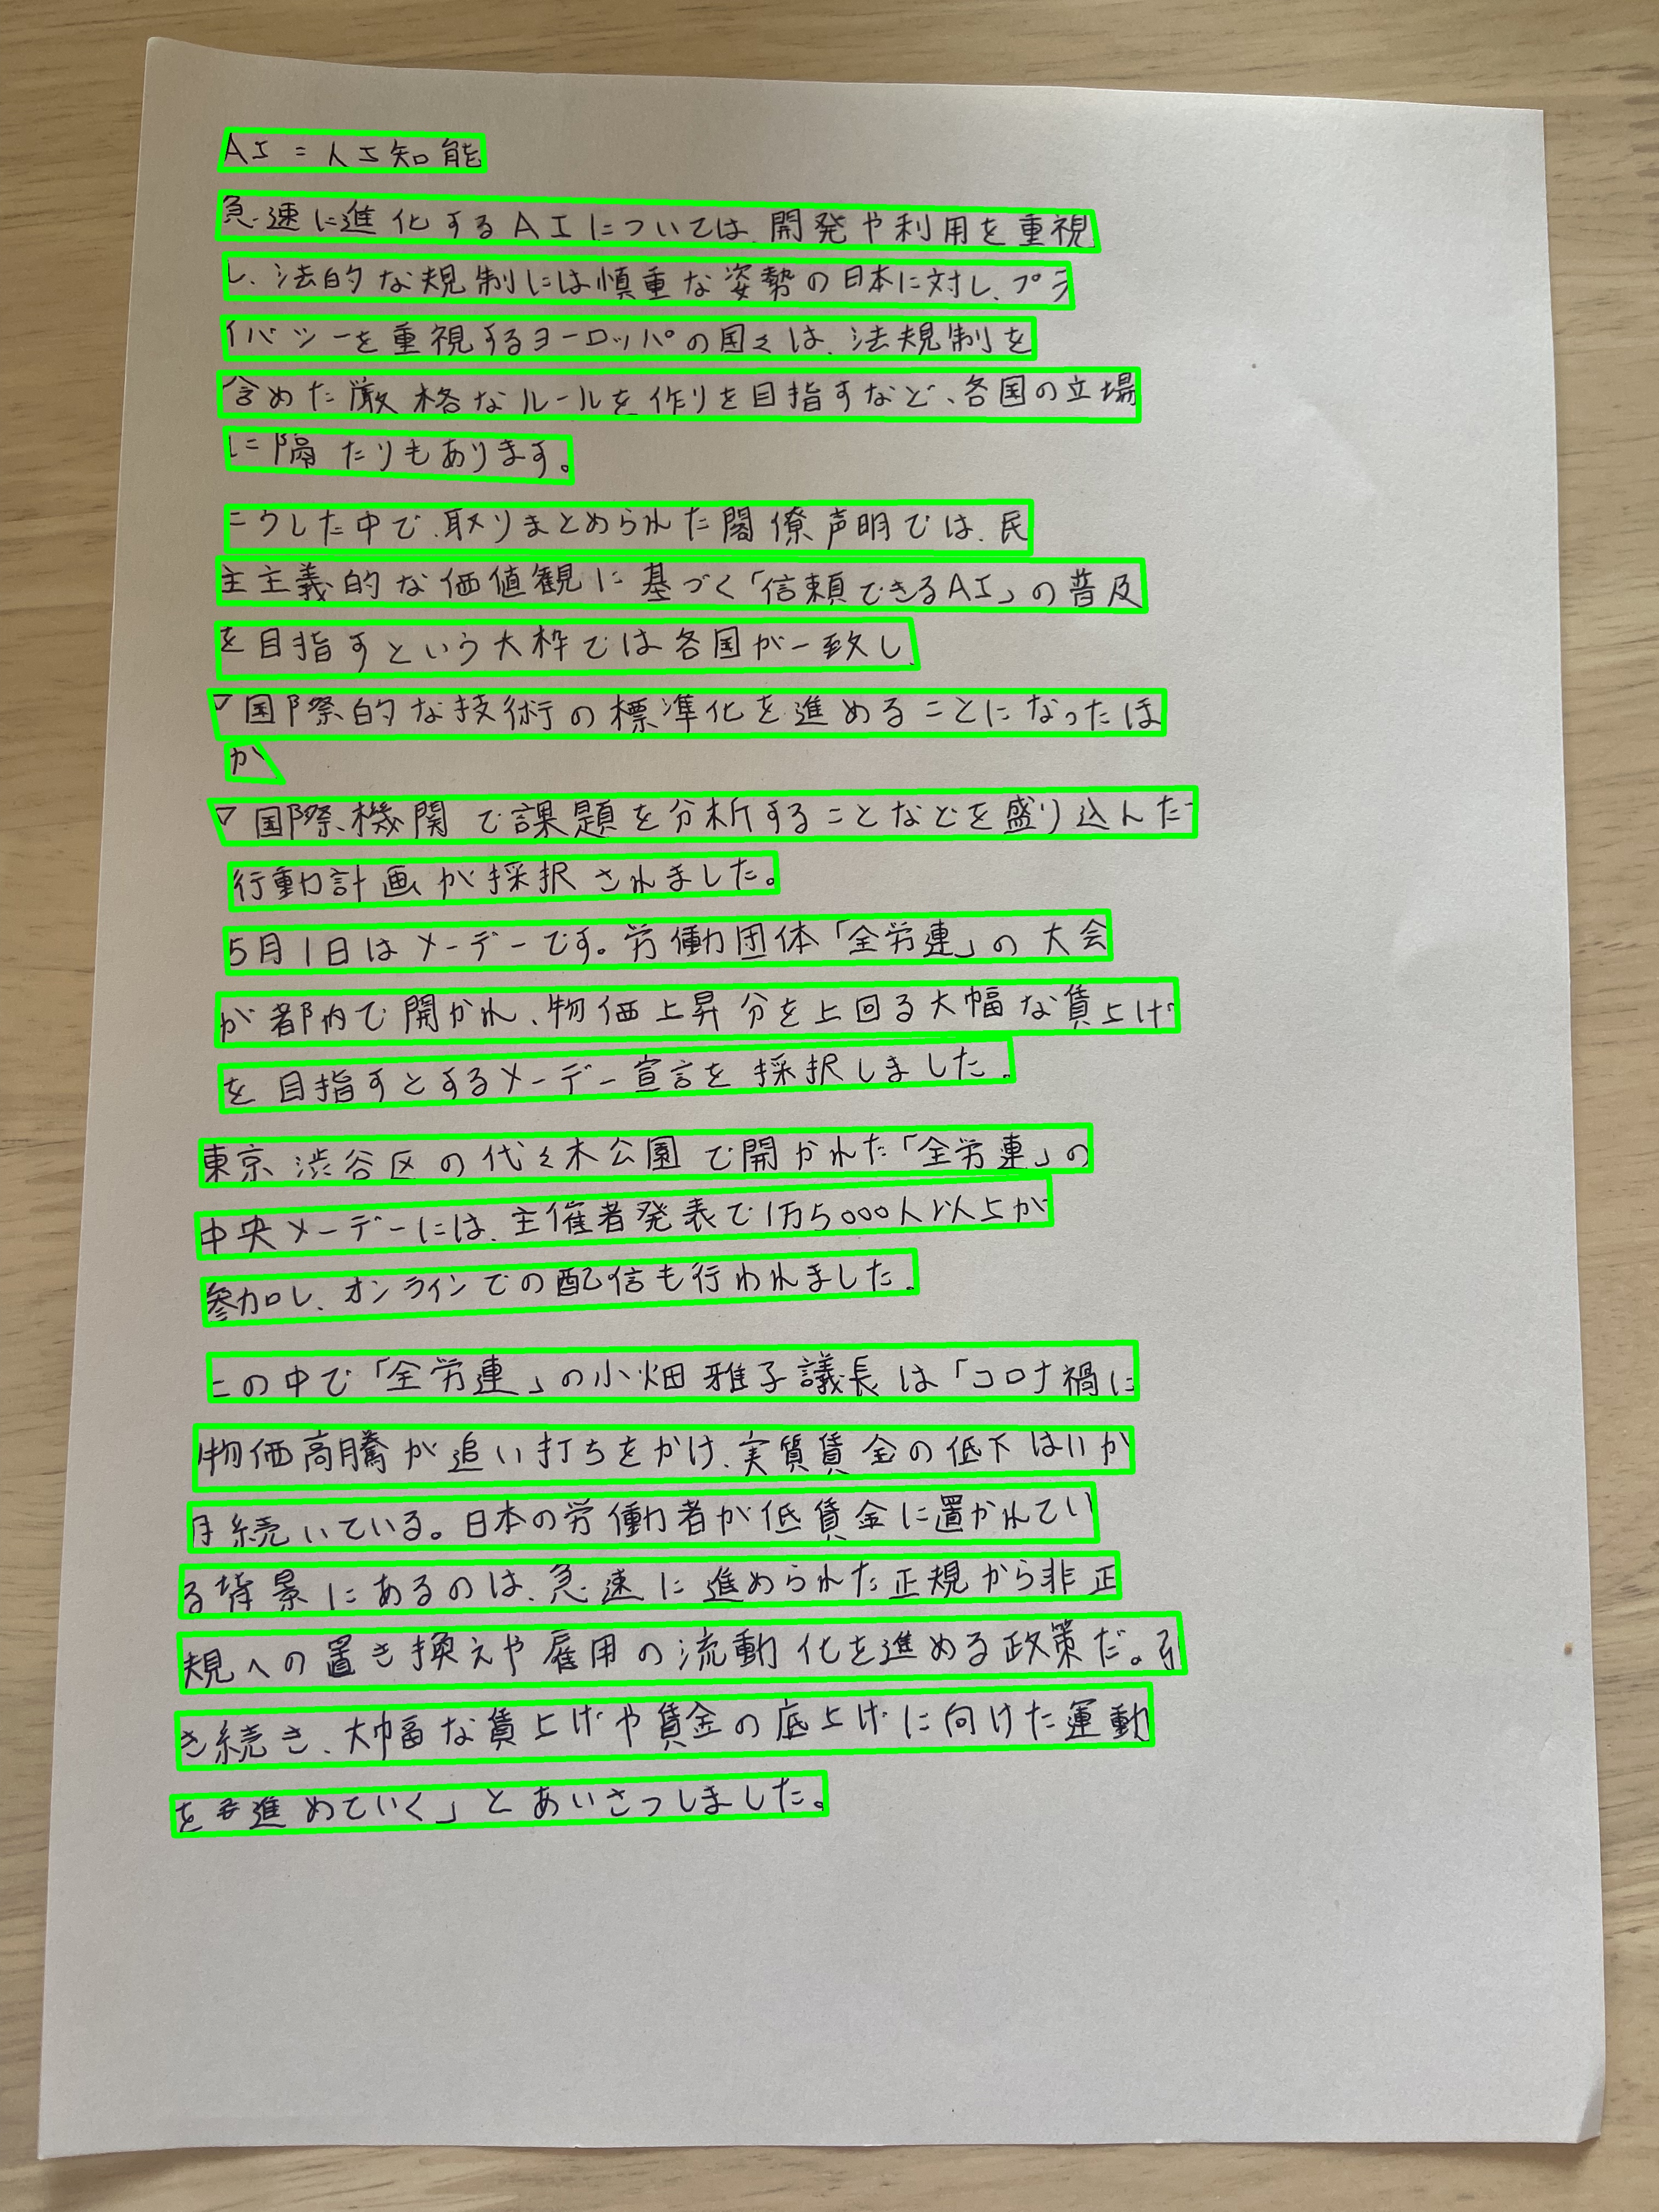 AI=人工知能
急速に進化するAIについては、開発や利用を重視
し、法的な規制には慎重な姿勢の日本に対し、プラ
イバシーを重視するヨーロッパの国々は、法規制を
含めた厳格なルールを作りを目指すなど、各国の立場
に隔たりもあります。
こうした中で、取りまとめられた閣僚声明では、民
主主義的な価値観に基づく「信頼できるAI」の普及
を目指すという大枠では各国が一致し、
▽国際的な技術の標準化を進めることになったほ
か、
▽国際機関で課題を分析することなどを盛り込んだ
行動計画が採択されました。
5月1日はメーデーです。労働団体「全労連」の大会
が都内で開かれ、物価上昇分を上回る大幅な賃上げ
を目指すとするメーデー宣言を採択しました。
東京渋谷区の代々木公園で開かれた「全労連」の
中央メーデーには、主催者発表で1万5000人以上が
参加し、オンラインでの配信も行われました。
この中で「全労連」の小畑雅子議長は「コロナ禍に
物価高騰が追い打ちをかけ、実質賃金の低下は11か
月続いている。日本の労働者が低賃金に置かれてい
る背景にあるのは、急速に進められた正規から非正
規への置き換えや雇用の流動化を進める政策だ。引
き続き、大幅な賃上げや賃金の底上げに向けた運動
を進めていく」とあいさつしました。